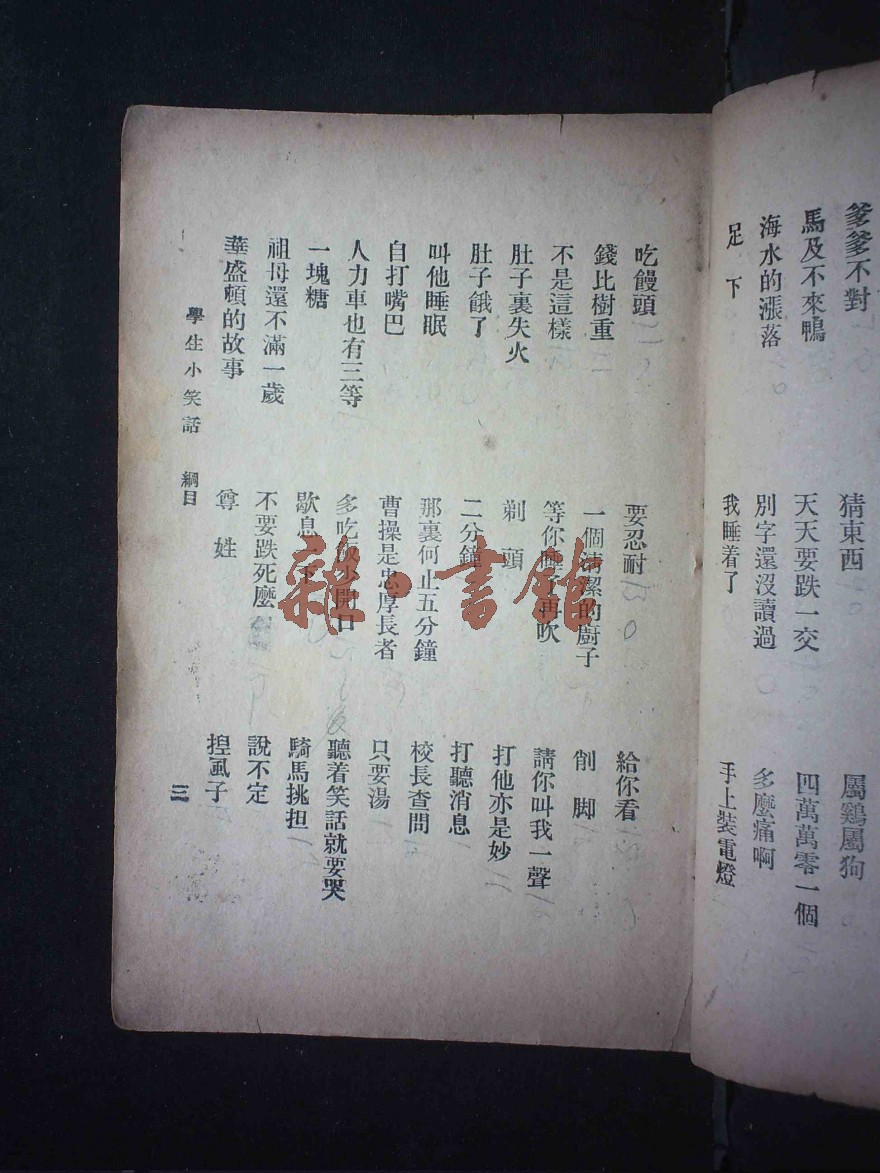 爹爹不對
馬及不來鴨
海水的漲落
足下
猜東西
天天要跌一交
別字還沒讀過
我睡着了
屬鷄屬狗
四萬萬零一個
多麼痛啊
手上裝電燈
吃饅頭
錢比樹重
不是這樣
肚子裏失火
肚子餓了
叫他睡眠
自打嘴巴
人力車也有三等
一塊糖
祖母還不滿一歲
華盛頓的故事
要忍耐
一個清潔的廚子
等你睡了再吹
剃頭
二分鐘
那裏何止五分鐘
曹操是忠厚長者
多吃飯少開口
歇息一下
不要跌死麼
尊姓
給你看
削脚
請你叫我一聲
打他亦是妙
打聽消息
校長查問
只要湯
聽着笑話就要哭
騎馬挑担
說不定
捏風子
學生小笑話 綱目
三
雜·書館